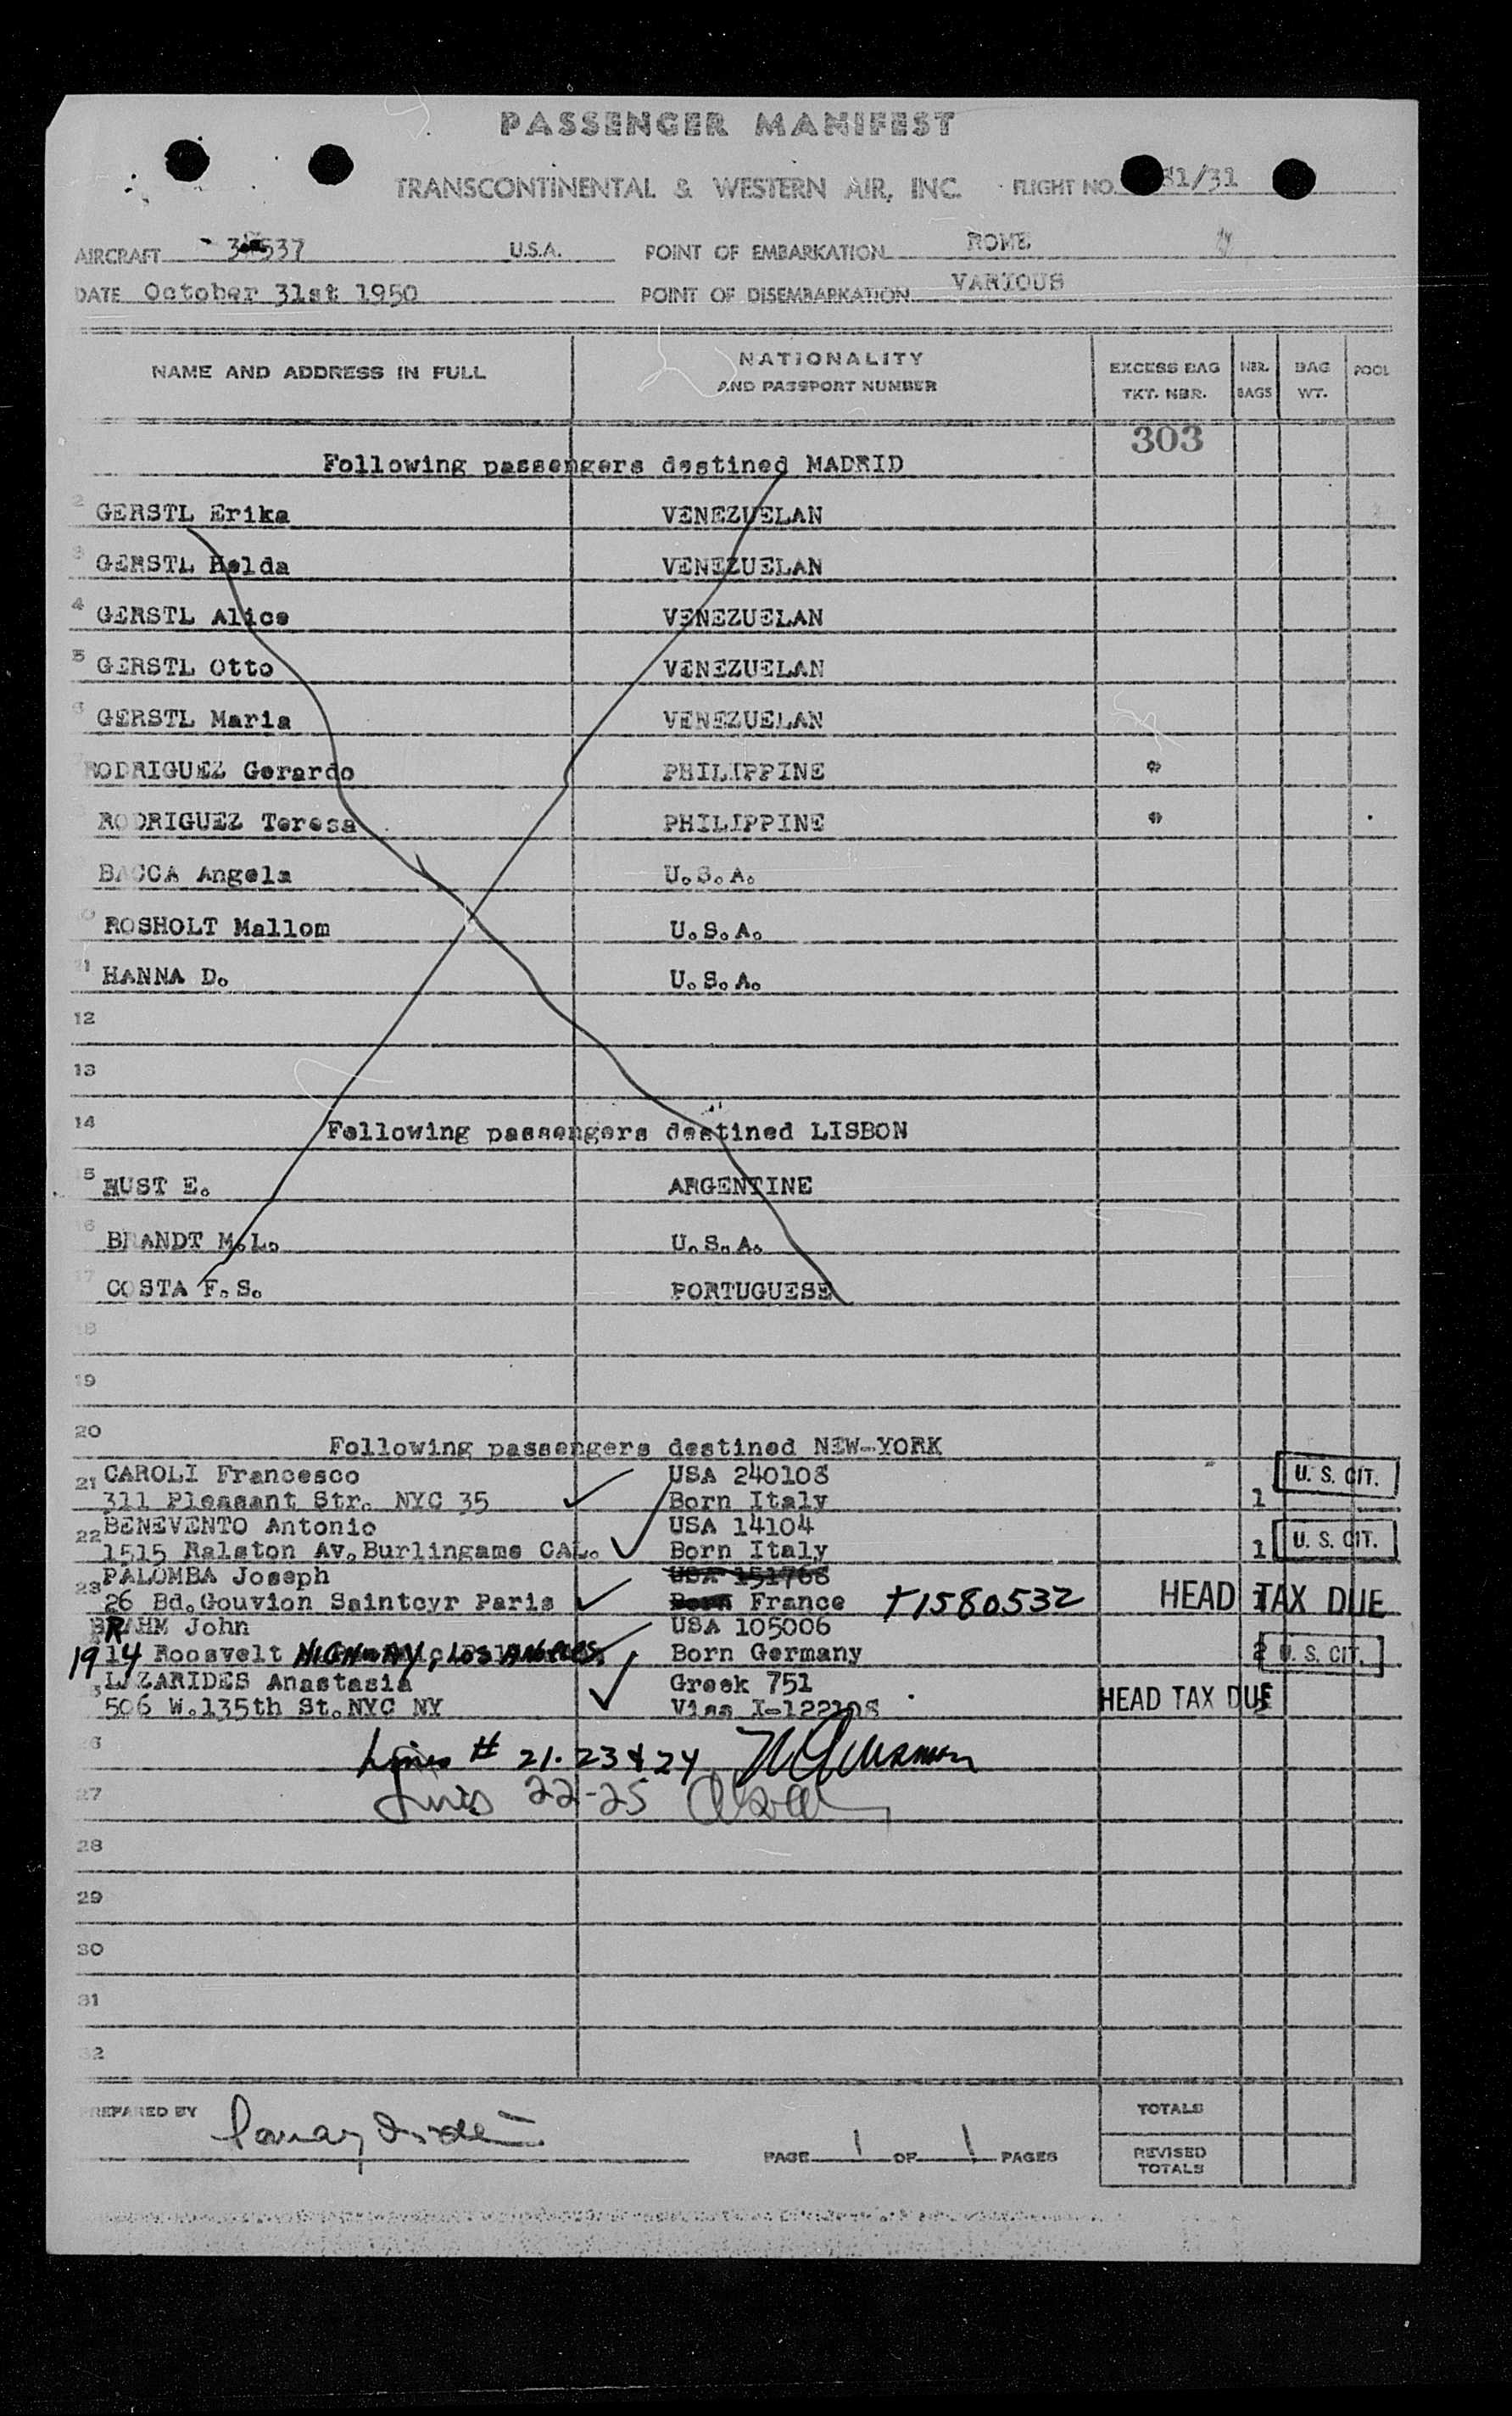 PASSENGER MANIFEST
TRANSCONTINENTAL & WESTERN AIR, INC. FLIGHT NO. 31/31
AIRCRAFT 537 U.S.A. POINT OF EMBARKATION ROME
DATE October 31st 1950 POINT OF DISEMBARKATION VARIOUS
NAME AND ADDRESS IN FULL NATIONALITY AND PASSPORT NUMBER EXCESS BAG TKT. NBR. NBR. BAGS BAG WT. POOL
303
Following passengers destined MADRID
2 GERSTL Erika VENEZUELAN
3 GERSTL Helda VENEZUELAN
4 GERSTL Alice VENEZUELAN
5 GERSTL Otto VENEZUELAN
6 GERSTL Maria VENEZUELAN
RODRIGUEZ Gerardo PHILIPPINE
RODRIGUEZ Teresa PHILIPPINE
BACCA Angela U.S.A.
10 ROSHOLT Mallom U.S.A.
11 HANNA D. U.S.A.
12
13
14 Following passengers destined LISBON
15 MUST E. ARGENTINE
16 BRANDT M.L. U.S.A.
17 COSTA F.S. PORTUGUESE
18
19
20 Following passengers destined NEW-YORK
21 CAROLI Francesco USA 240108 U. S. CIT.
311 Pleasant Str. NYC 35 Born Italy 1
22 BENEVENTO Antonio USA 14104 U. S. CIT.
1515 Ralston Av. Burlingame CAL. Born Italy 1
23 PALOMBA Joseph USA 151768
26 Bd. Gouvion Saintcyr Paris Born France +1580532 HEAD TAX DUE
BRAHM John USA 105006
1914 Roosvelt HIGHWAY, LOS ANGELES. Born Germany 2 U. S. CIT.
LAZARIDES Anastasia Greek 751
506 W. 135th St. NYC NY Visa I-122108 HEAD TAX DUE
Lines # 21. 23 & 24
27 Lines 22-25
28
29
30
31
32
PREPARED BY
PAGE 1 OF 1 PAGES
TOTALS
REVISED TOTALS